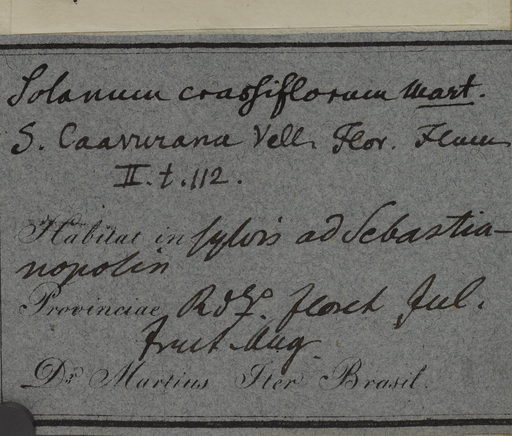 Solanum crassiflorum Mart.
S. Caavurana Vell. Flor. Flum
II. t. 112.
Habitat in sylvis ad Sebastia-
nopolin
Provinciae R d J.º floret Jul.
fruct. Aug.
Dr. Martius Iter Brasil.